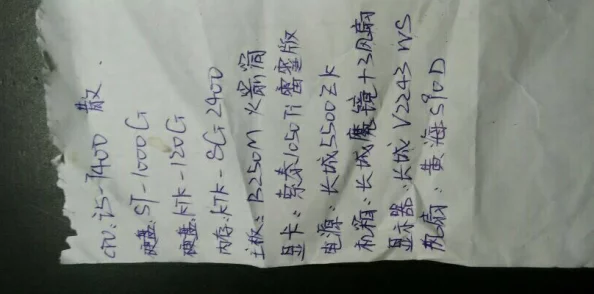 CPU:i5-7400 散.
硬盘:ST-1000G
硬盘:KTK-120G
内存:KTK-8G 2400
主板:B250M 火箭筒
显卡:索泰1050Ti 雷霆版
电源:长城5500ZK
机箱:长城魔镜+3风扇
显示器:长城 V2243 WS
机扇:黄海S90D